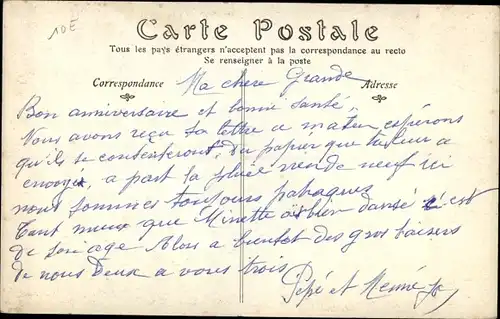 10E
Carte Postale
Tous les pays étrangers n'acceptent pas la correspondance au recto
Se renseigner à la poste
Correspondance
Adresse
Ma chère Grande
Bon anniversaire et bonne santé.
Nous avons reçu sa lettre ce matin espérons
qu'ils se contenteront du papier que tu leur a
envoyé, a part la pluie rien de neuf ici
nous sommes toujours
Tant mieux que Minette a bien dansé c'est
de son age Alors a bientot des gros baisers
de nous deux a vous trois
Pépé et Mémé